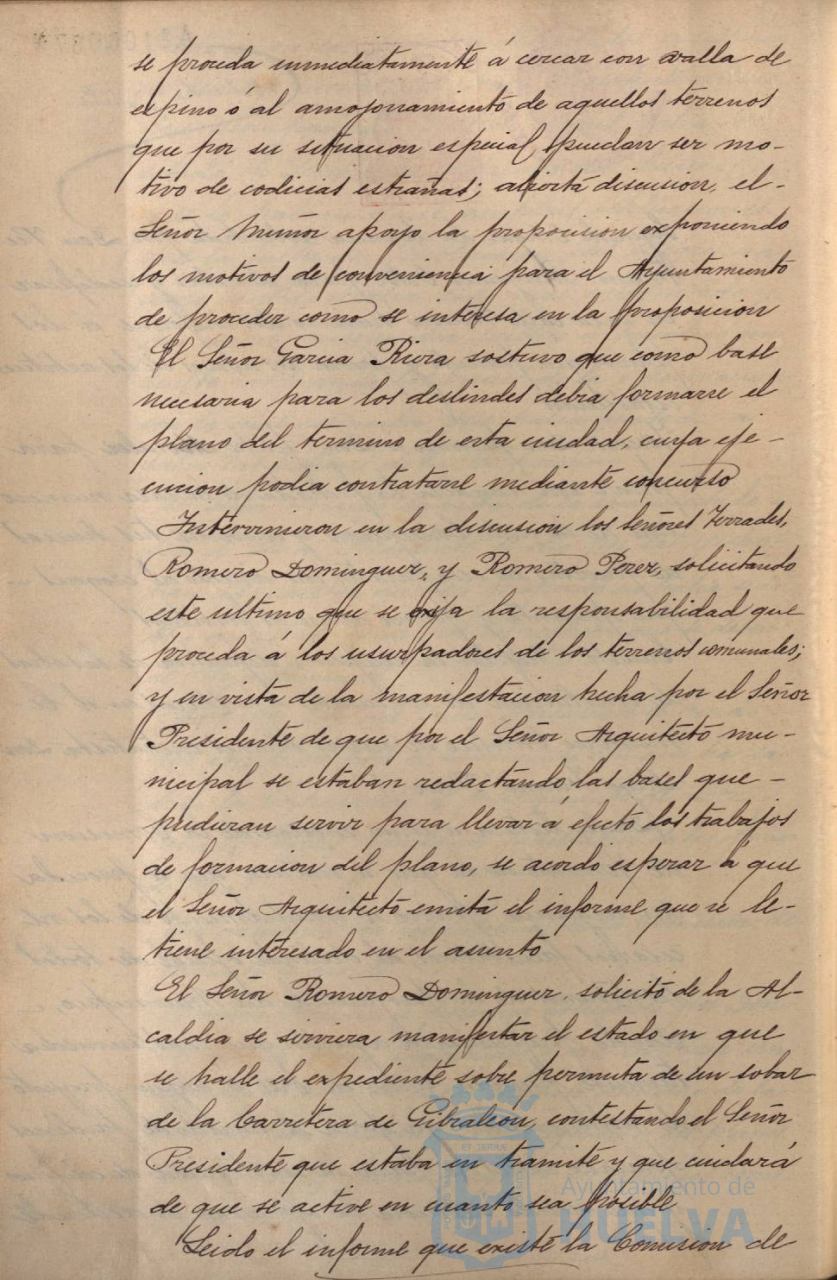 se proceda inmediatamente á cercar con valla de
espino ó al amojonamiento de aquellos terrenos
que por su situacion especial puedan ser mo-
tivo de codicias estrañas; abierta discusion, el-
Señor Muñoz apoyo la proposicion exponiendo
los motivos de conveniencia para el Ayuntamiento
de proceder como se interesa en la proposicion
El Señor Garcia Riera sostuvo que como base
necesaria para los deslindes debia formarse el
plano del termino de esta ciudad, cuya eje-
cucion podia contratarse mediante concurso
Intervinieron en la discusion los Señores Terrades,
Romero Dominguez, y Romero Perez, solicitando
este ultimo que se exija la responsabilidad que
proceda á los usurpadores de los terrenos comunales;
y en vista de la manifestacion hecha por el Señor
Presidente de que por el Señor Arquitecto mu-
nicipal se estaban redactando las bases que-
pudieran servir para llevar á efecto los trabajos
de formacion del plano, se acordo esperar á que
el Señor Arquitecto emita el informe que se le-
tiene interesado en el asunto
El Señor Romero Dominguez, solicitó de la Al-
caldia se sirviera manifestar el estado en que
se halle el expediente sobre permuta de un solar
de la Carretera de Gibraleon, contestando el Señor
Presidente que estaba en tramite y que cuidará
de que se active en cuanto sea posible
Leido el informe que existe la Comision de
Ayuntamiento de
HUELVA